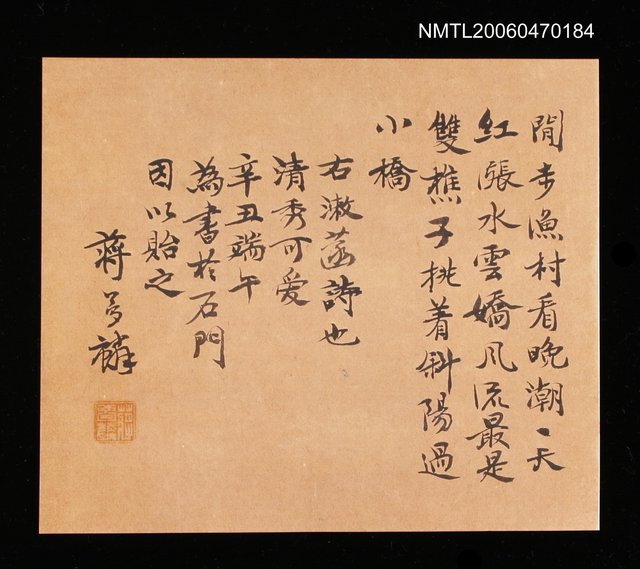 NMTL20060470184
閒步漁村看晚潮、天
紅漲水雲嬌風流最是
雙樵子挑着斜陽過
小橋
右淑菡詩也
清秀可爱
辛丑端午
為書於石門
因以貽之
蔣夢麟